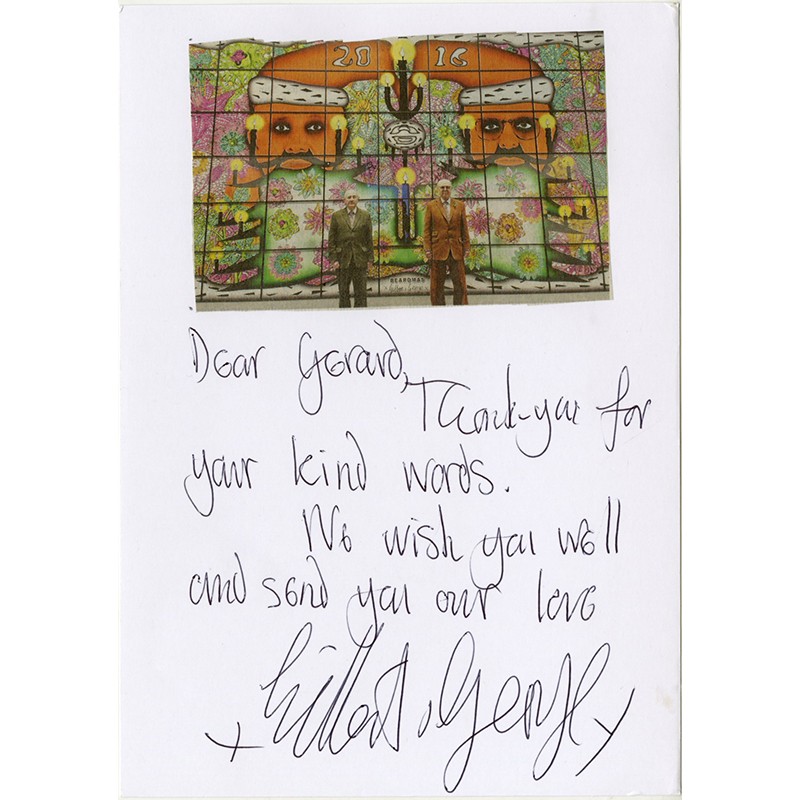 2016
BEARDMAD
Gilbert & George
Dear Gerard,
Thank-you for
your kind words.
We wish you well
and send you our love
x Gilbert & George x